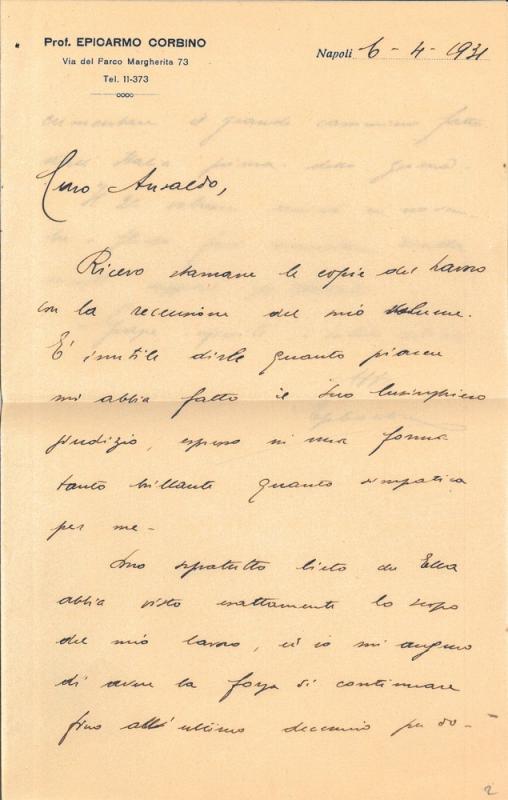 Prof. EPICARMO CORBINO
Via del Parco Margherita 73
Tel. 11-373
Napoli 6-4-1931
Caro Ansaldo,
Ricevo stamane le copie del Lavoro
con la recensione del mio volume.
E' inutile dirle quanto piacere
mi abbia fatto il Suo lusinghiero
giudizio, espresso in una forma
tanto brillante quanto simpatica
per me -
Sono sopratutto lieto che Ella
abbia visto esattamente lo scopo
del mio lavoro, ed io mi auguro
di avere la forza di continuare
fino all'ultimo decennio per do-
2